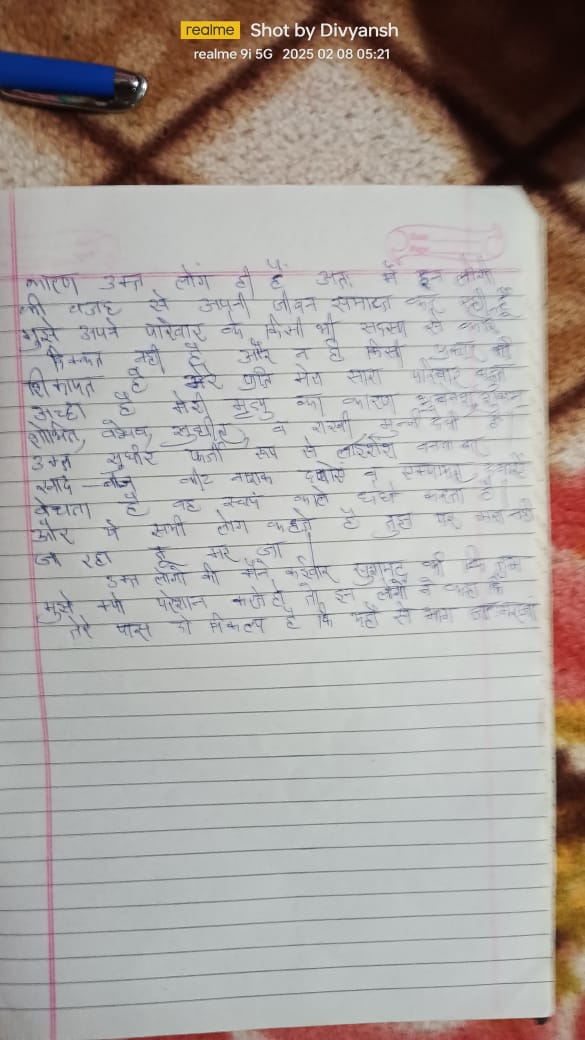 realme Shot by Divyansh
realme 9i 5G 2025 02 08 05:21
कारण उक्त लोग ही हैं अतः मैं इन लोगो
की वजह से अपनी जीवन समाप्त कर रही हूँ
मुझे अपने परिवार के किसी भी सदस्य से कोई
दिक्कत नही है और न ही किसी प्रकार की
शिकायत है मेरे प्रति मेरा सारा परिवार बहुत
अच्छा है मेरी मृत्यु का कारण
शोभित, वैभव, सुधीर, व राखी मुन्नी देवी होंगे
उक्त सुधीर फर्जी रूप से लाइसेंस बनवाकर
खाद बीज कीट नाशक दवाये व दवाई
बेचता है वह स्वयं काले धंधे करता है।
और ये सभी लोग कहते है तुझ पर नही
जा रहा है मर जा।
उक्त लोगो की मैने कईबार खुशामद की कि तुम
मुझे क्यो परेशान करते हो तो इन लोगो ने कहा कि
तेरे पास दो विकल्प है कि यहाँ से भाग जा